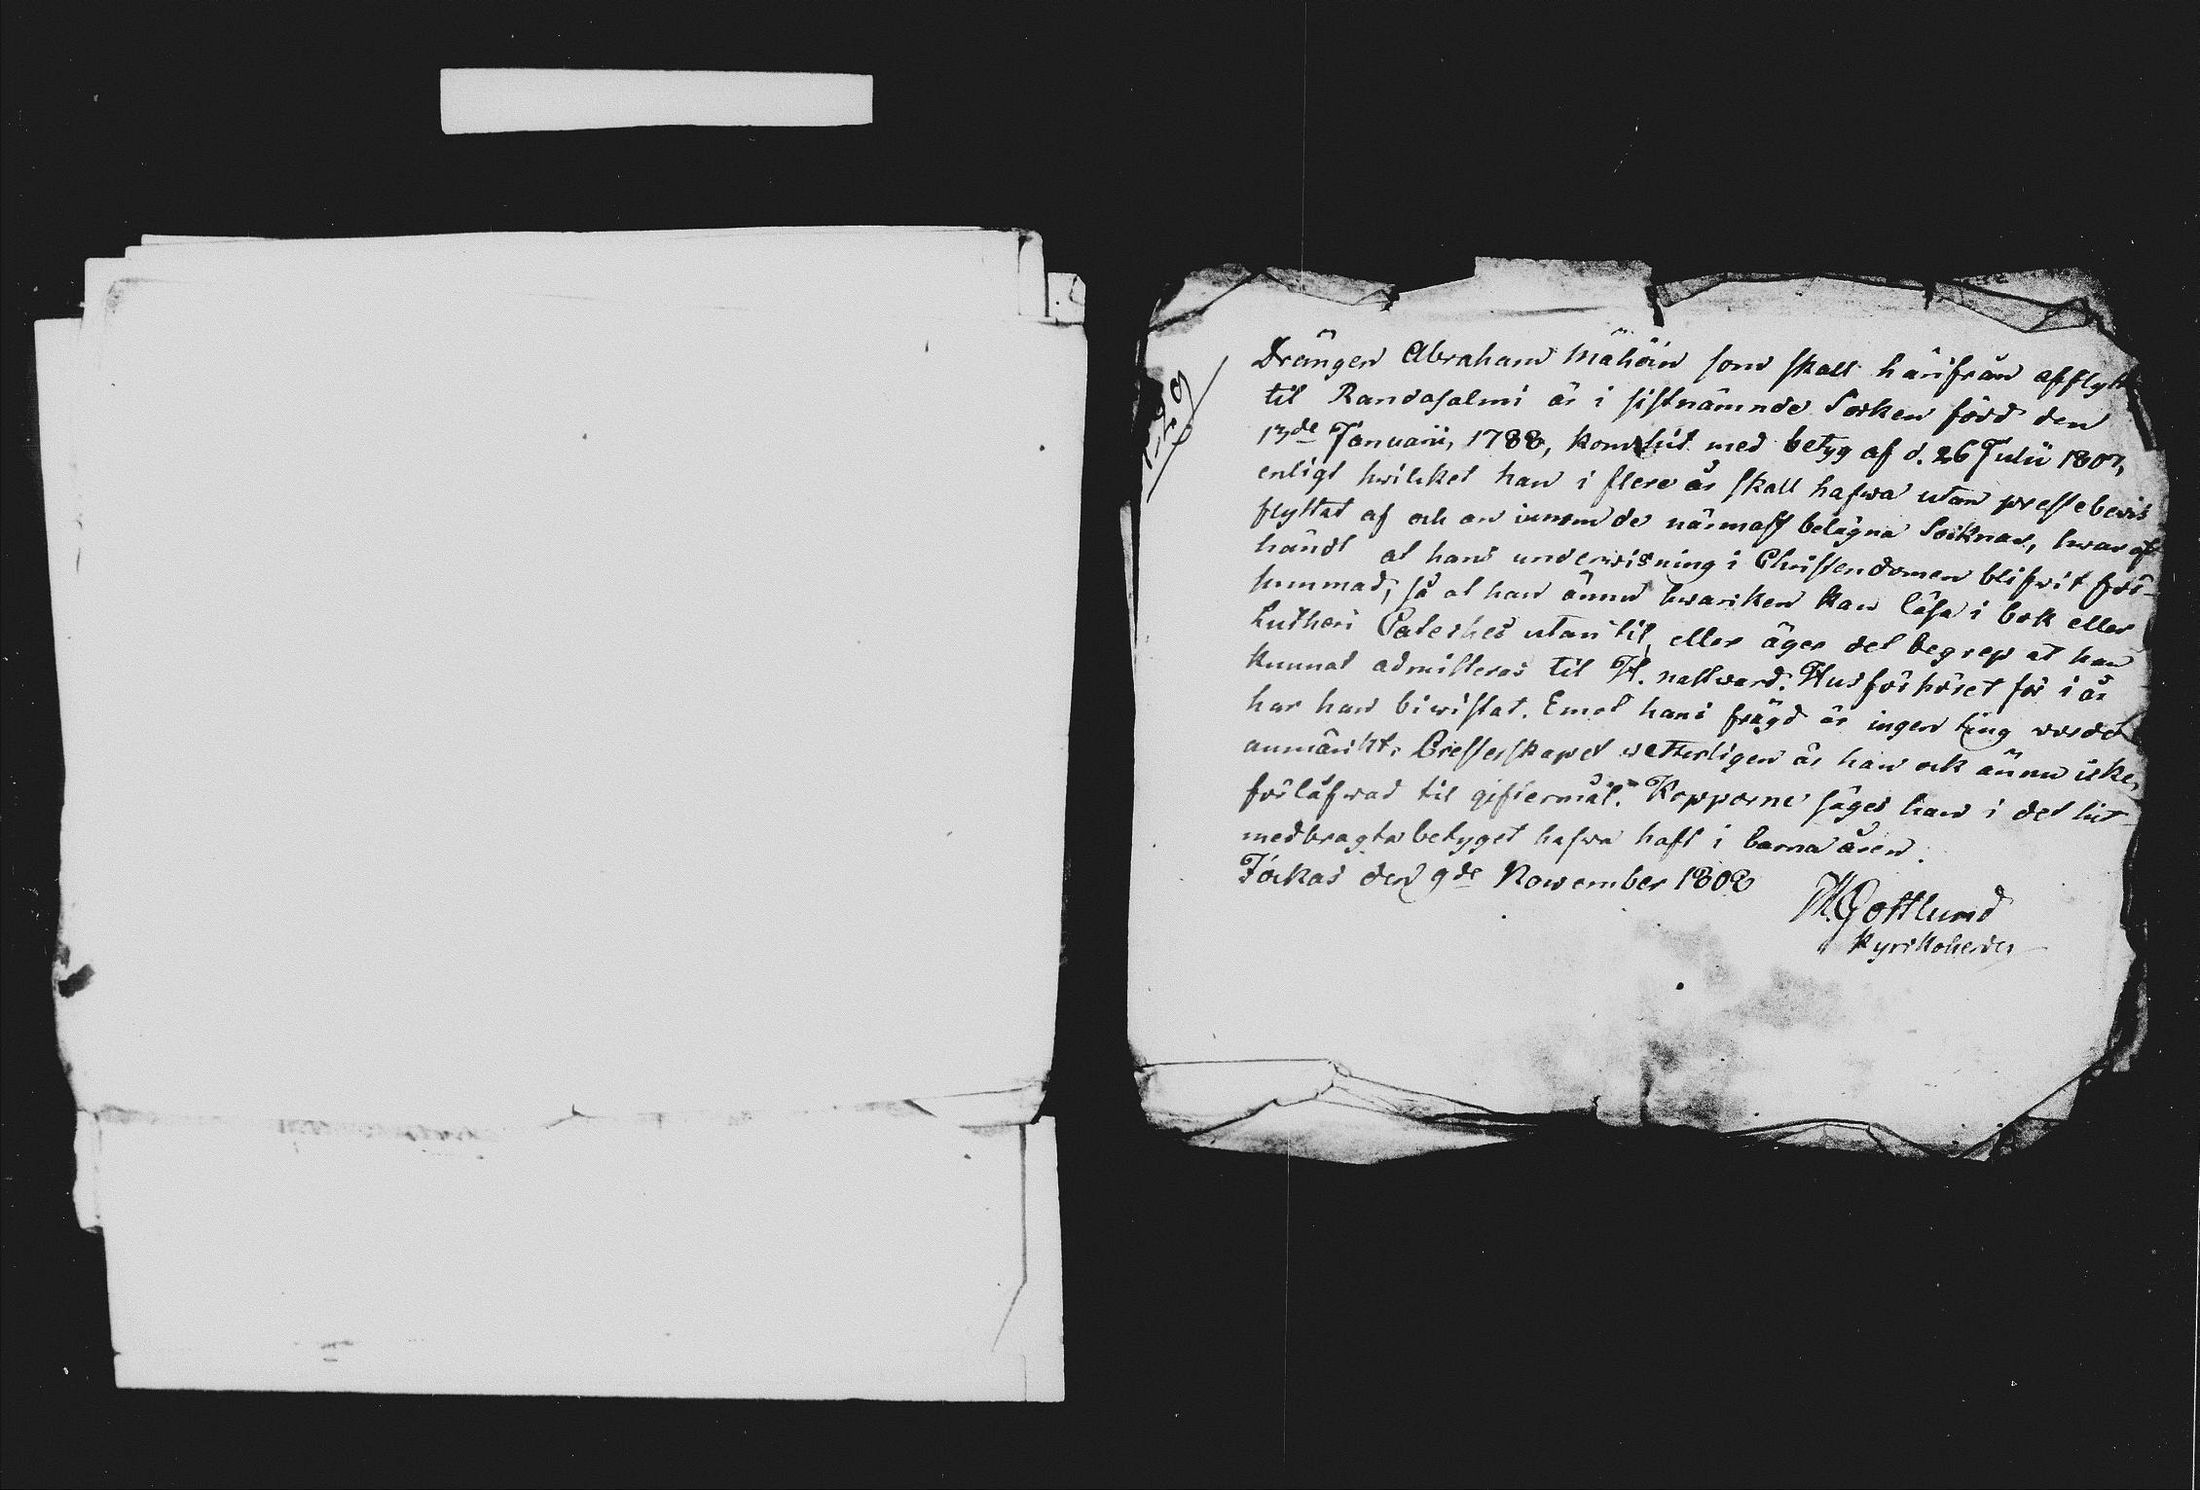 Drängen Abraham Mähöin som skall härifrån afflytt
til Randasalmi är i sistnämnde Sorken född den
13de Januarii, 1788, kom hit med betyg af d. 26 Julii 1807,
enligt hwilket han i flere år skall hafwa utan prestebevis
flyttat af och an innom de närmast belägna Soknar, hwar af
händt at hans underwisning i Christendomen blifwit för-
summad, så at han ännu hwarken kan läsa i bok eller
Lutheri Cateches utan til, eller äger det begrep at han
kunnat admitteras til H. nattward. Husförhöret för i år
har han biwistat. Emot hans frägd är ingen ting wordet
anmärkt. Presterskapet wetterligen är han ock ännu icke
förläfwad til giftermål. Kopporne säges han i det hit
medbragta betyget hafwa haft i barna åren.
Jockas den 9de November 1808
M. Gottlund
Kyrkoherde